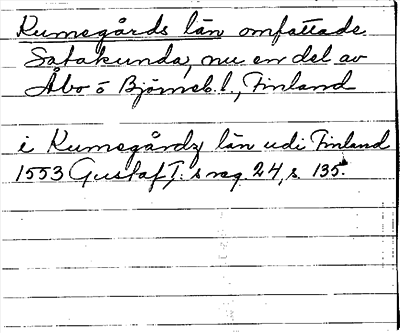 Kumogårds län omfattade
Satakunda, nu en del av
Åbo o Björneb. l., Finland
i Kumogårdz län udi Finland
1553 Gustaf I:s reg. 24, s. 135.